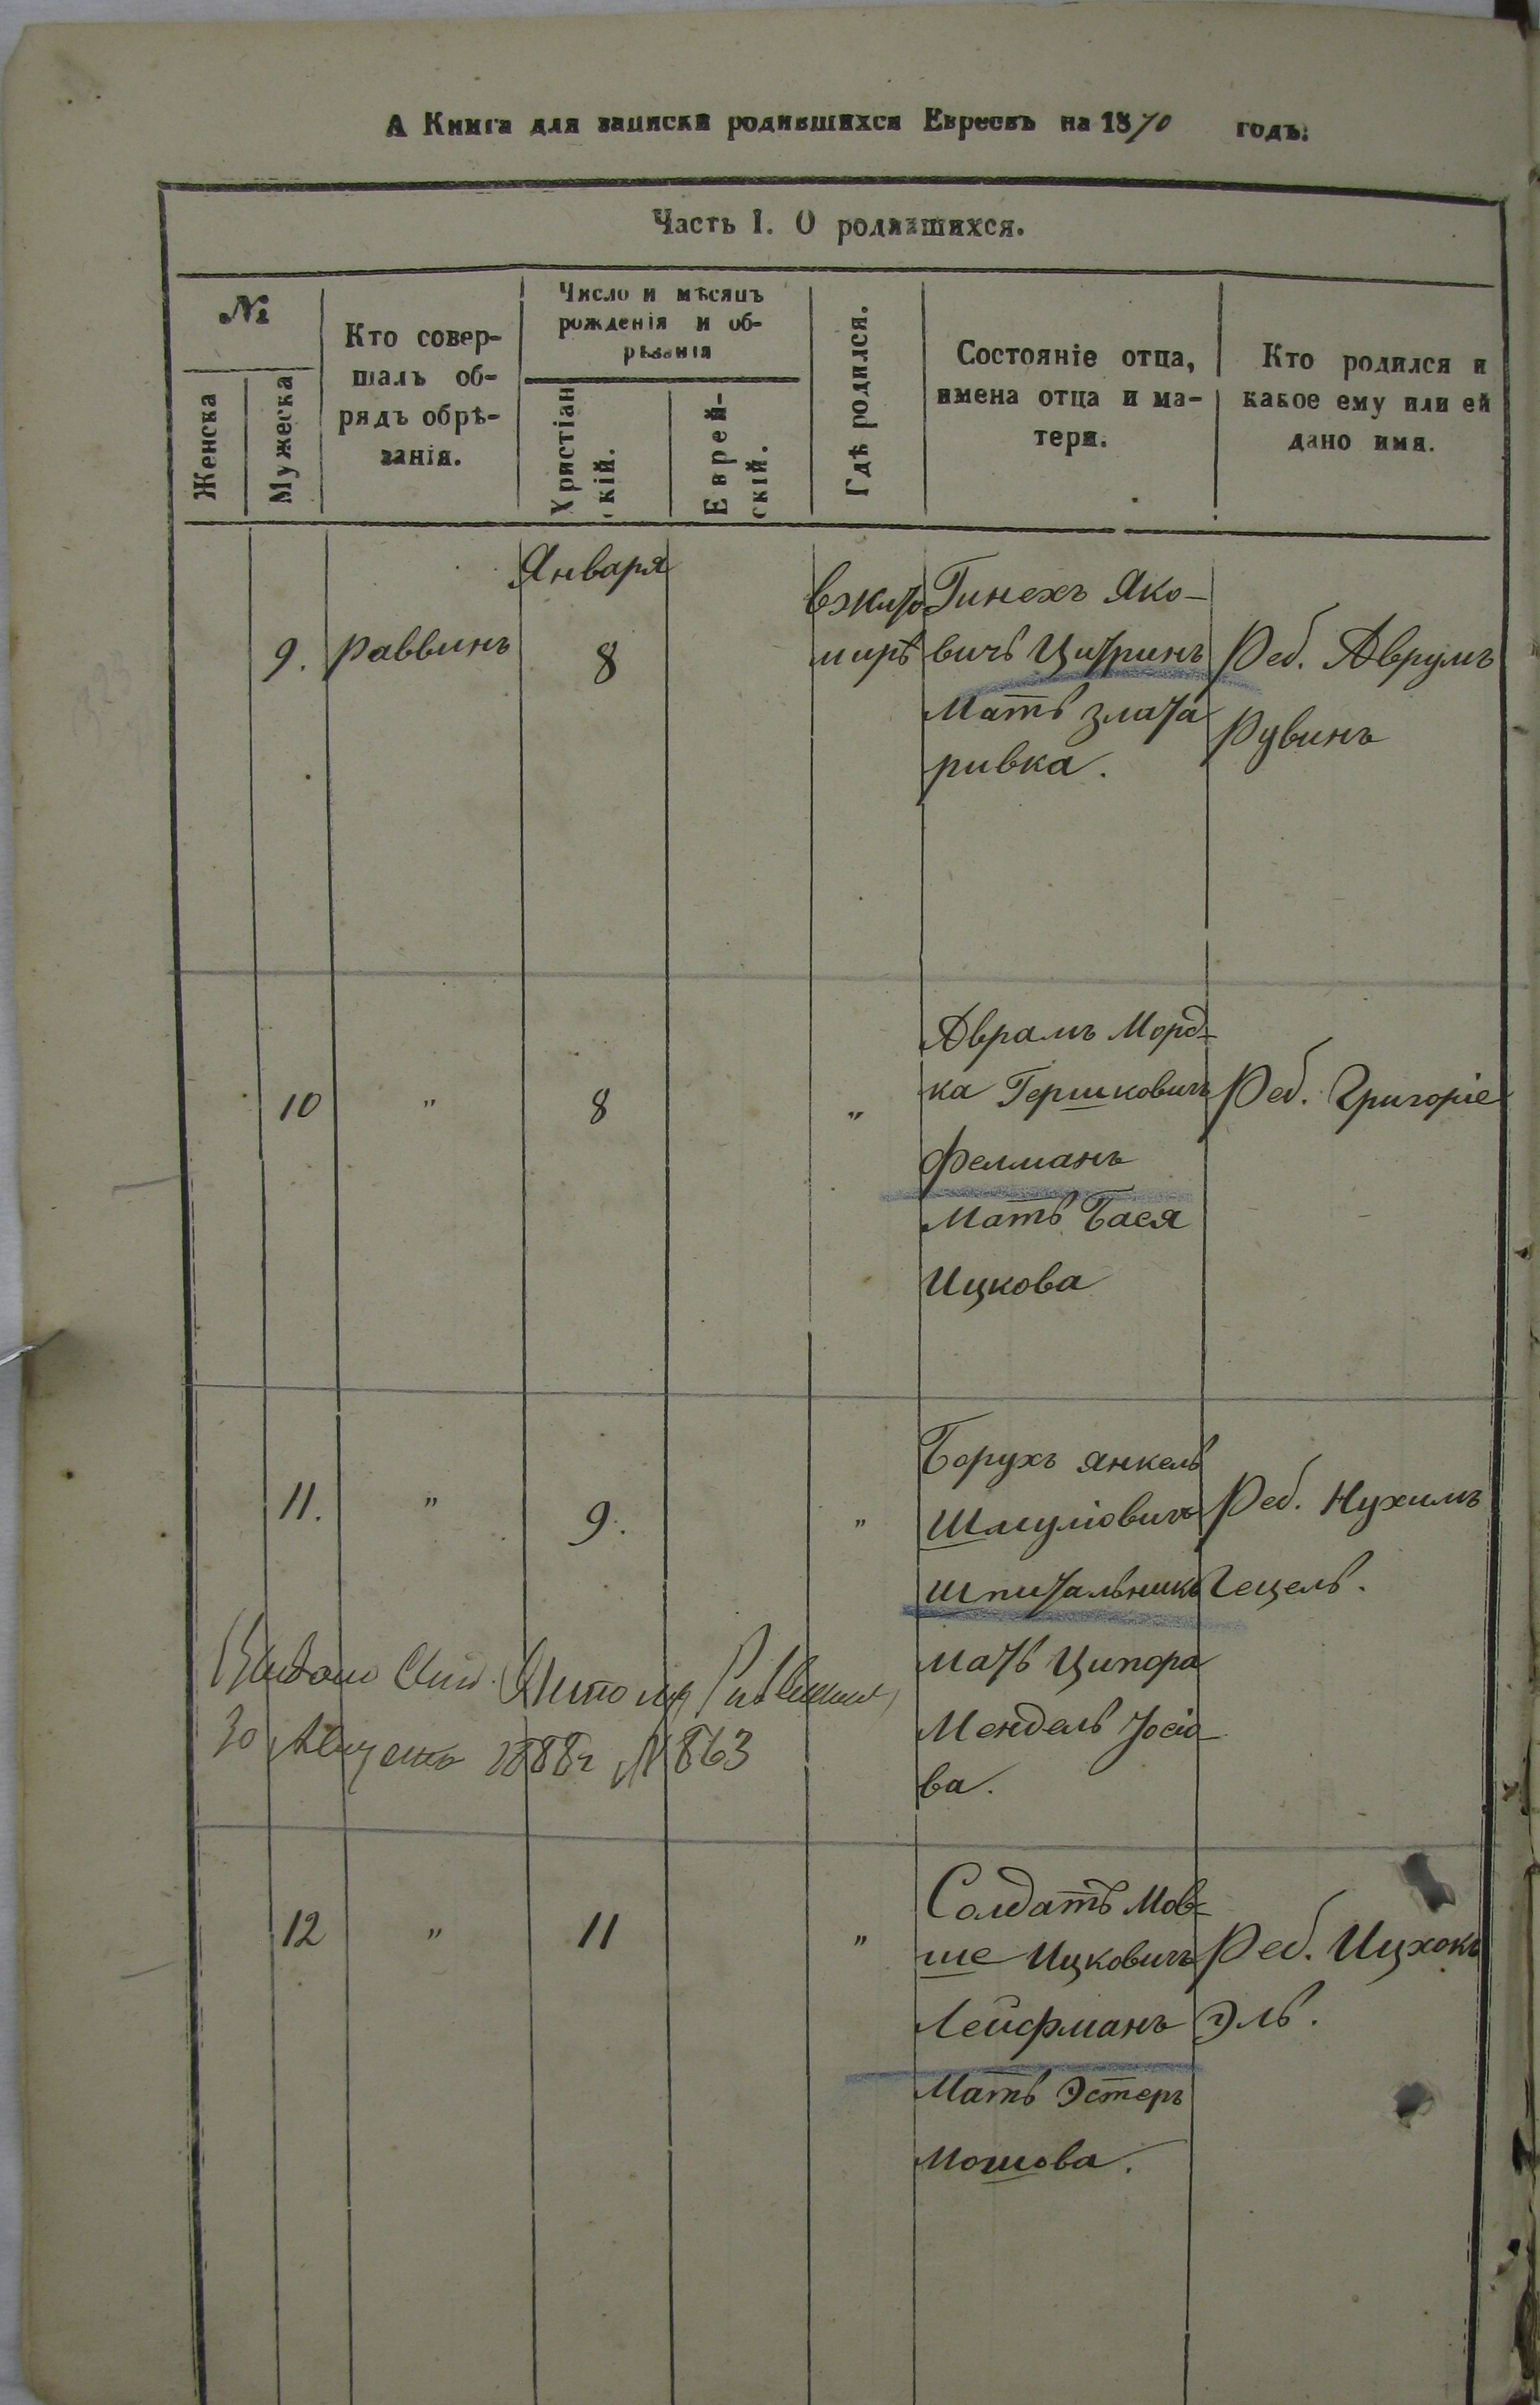 А Книга для записки родившихся Евреевъ на 1870 годъ.
Часть I. О родившихся.
№
Женска
Мужеска
Кто совер-
шалъ об-
рядъ обрѣ-
занія.
Число и мѣсяцъ
рожденія и об-
рѣзанія
Христіан
скій.
Еврей-
скій.
Гдѣ родился.
Состояніе отца,
имена отца и ма-
тери.
Кто родился и
какое ему или ей
дано имя.
Января
9. раввинъ 8
вжито
мирѣ
Гинехъ Яко-
вичъ Цитринъ
Мать злата
ривка.
Реб. Аврумъ
Рувинъ
10 " 8 "
Аврамъ Морд-
ка Гершковичъ
Фелманъ
Мать Бася
Ицкова
Реб. Григоріе
11. " 9. "
Борухъ янкель
Шмуліовичъ
шпитальникъ
мать Ципора
Мендель Јосіо-
ва.
Реб. Нухимъ
Гецель.
30 Августа 1888г №863
12 " 11 "
Солдатъ Мов-
ше Ицковичъ
Лейфманъ
Мать Эстеръ
Мошова.
Реб. Ицхокъ
Эль.